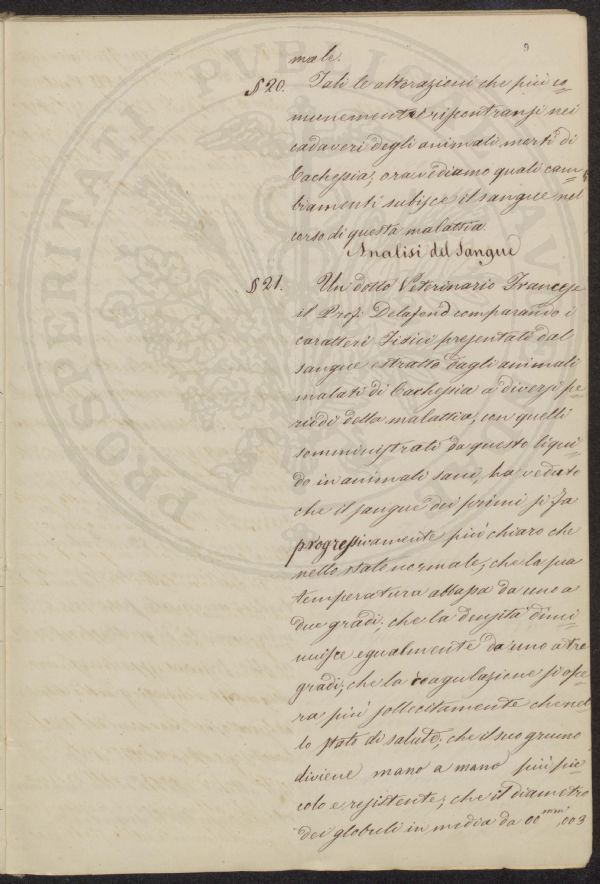 9
male.
§ 20. Tali le alterazioni che più co
munemente riscontransi nei
cadaveri degli animali morti di
Cachessia; ora vediamo quali cam
biamenti subisce il sangue nel
corso di questa malattia.
Analisi del Sangue
§ 21. Un dotto Veterinario Francese
il Prof. Delafond comparando i
caratteri Fisici presentati dal
sangue estratto dagli animali
malati di Cachessia a diversi pe
riodi della malattia, con quelli
somministrati da questo liqui
do in animali sani, ha veduto
che il sangue dei primi si fa
progressivamente più chiaro che
nello stato normale; che la sua
temperatura abbassa da uno a
due gradi; che la densità dimi
nuisce egualmente da uno a tre
gradi; che la coagulazione si ope
ra più sollecitamente che nel
lo stato di salute; che il suo grumo
diviene mano a mano più pic
colo e resistente; che il diametro
dei globuli in media da 00mm,003
PROSPERITATI PUBLICAE